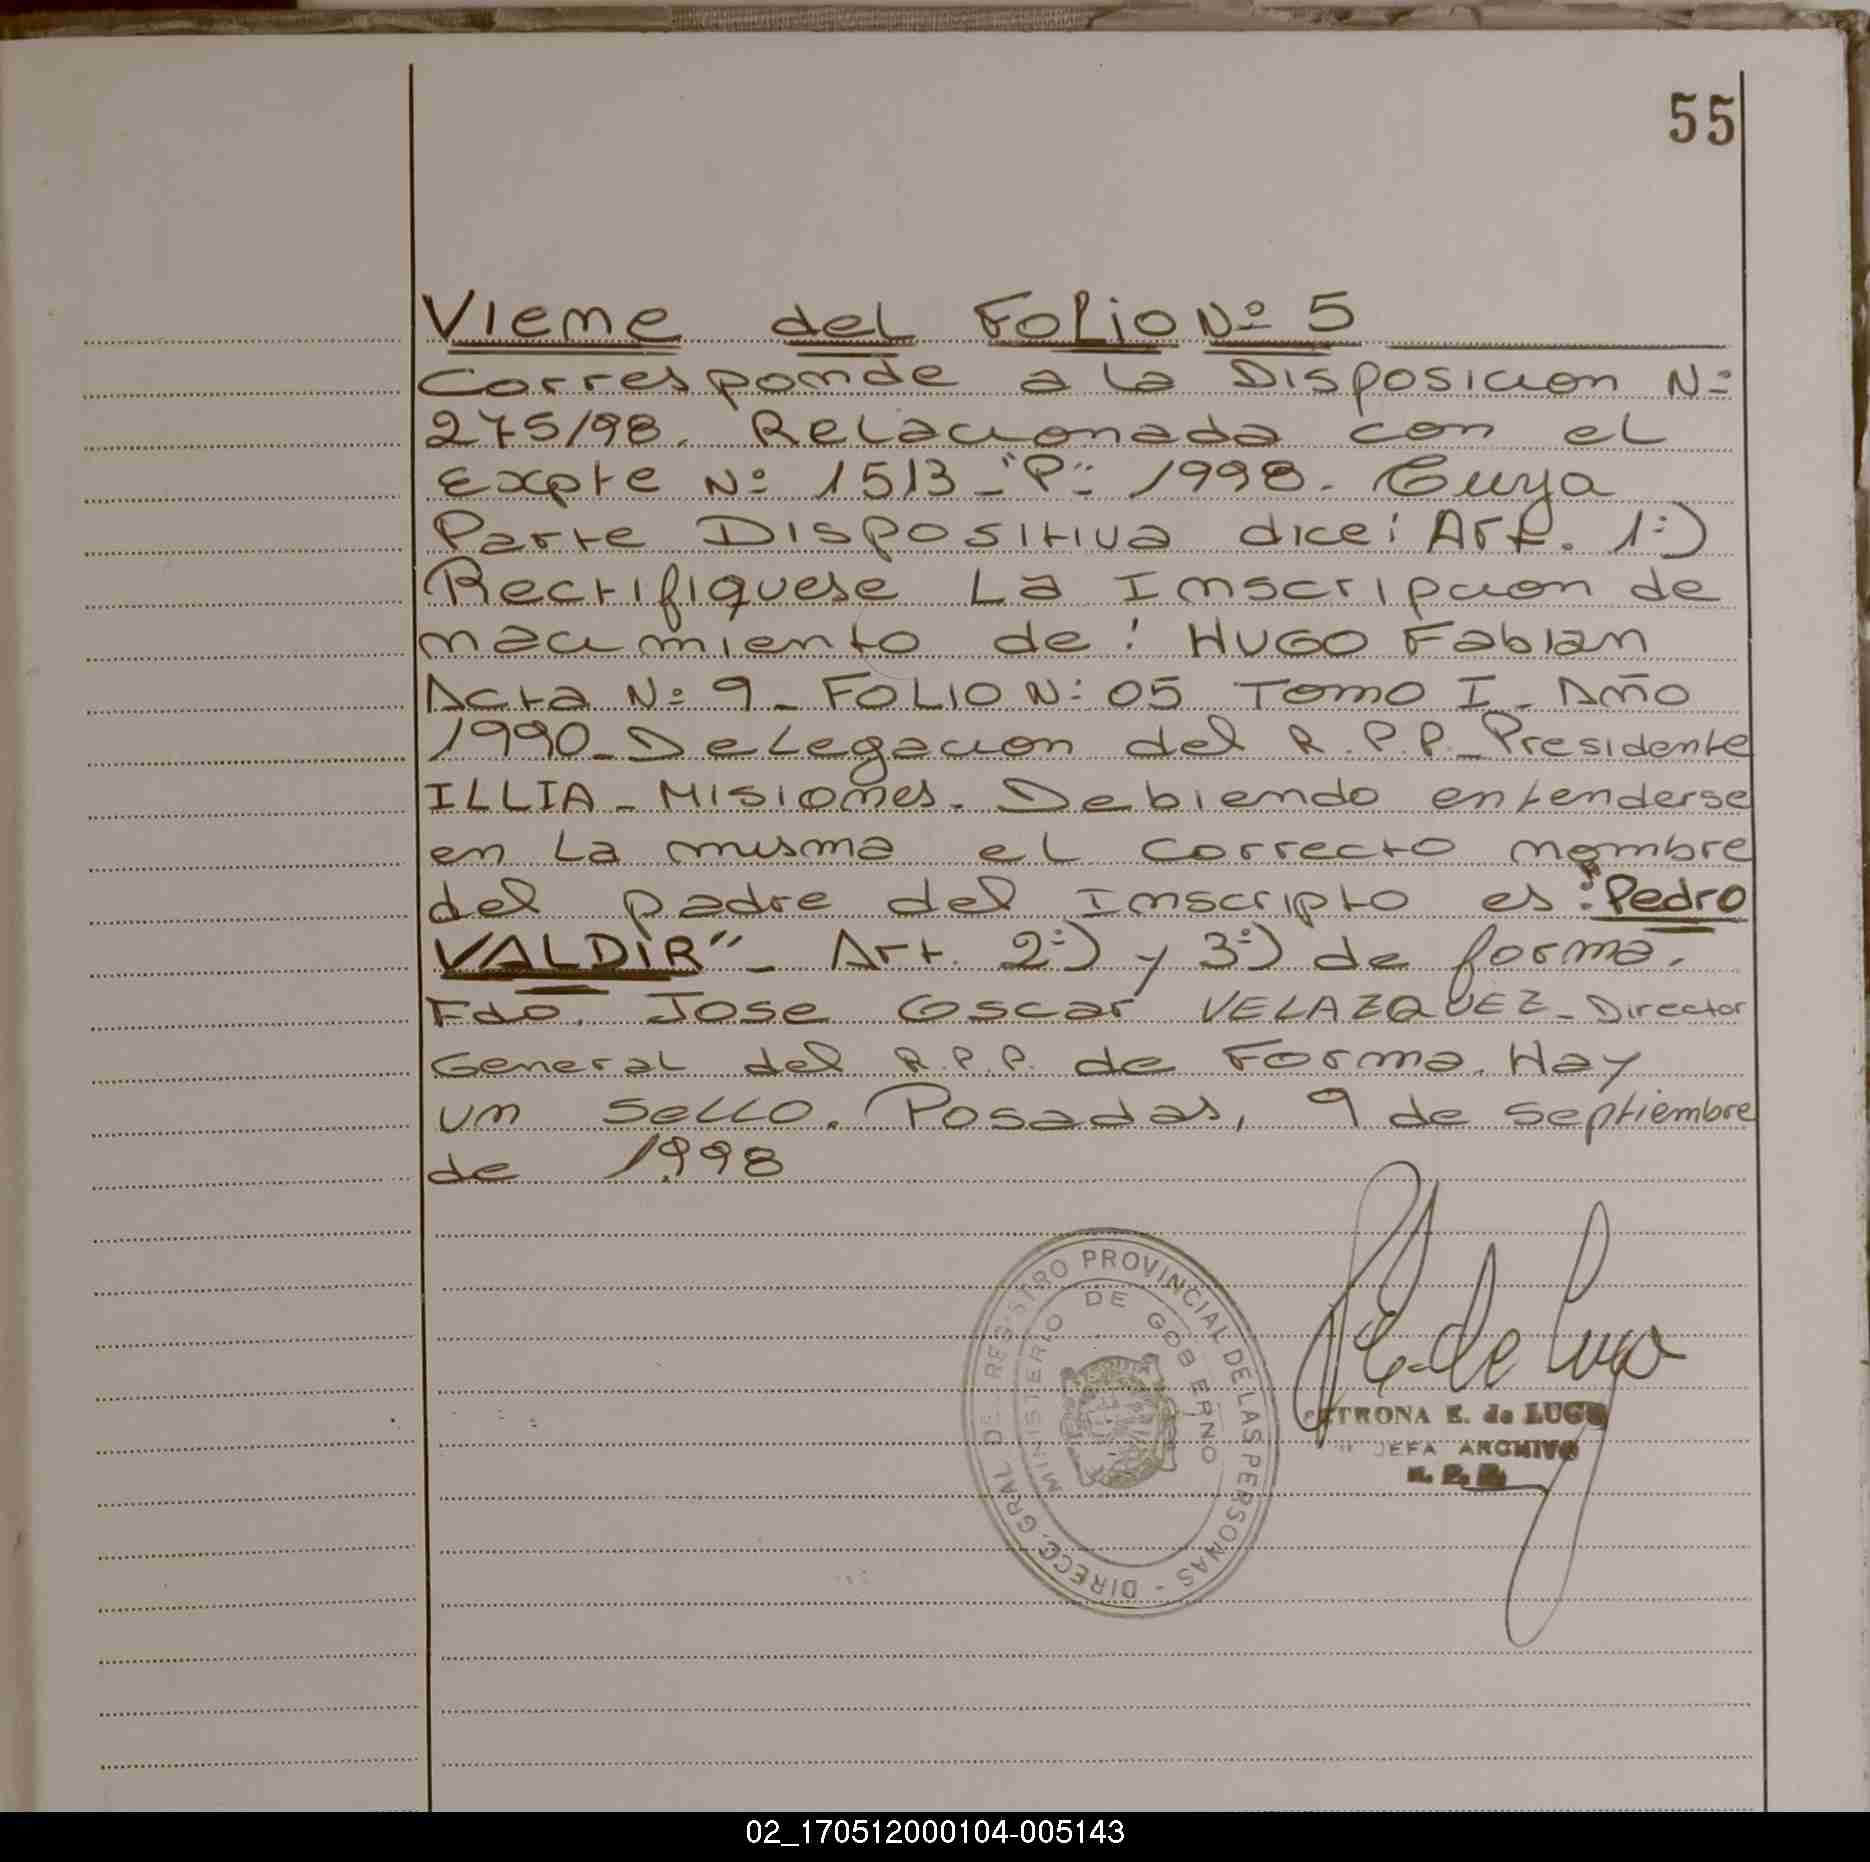 55
Viene del Folio Nº 5
Corresponde a la Disposicion Nº
275/98. Relacionada con el
Expte Nº 1513-"P"- 1998. Cuya
Parte Dispositiva dice: Art. 1º)
Rectifiquese La Inscripcion de
nacimiento de: HUGO Fabian
Acta Nº 9_ FOLIO Nº 05 Tomo I_ Año
1990_ Delegacion del R.P.P._ Presidente
ILLIA_ Misiones. Debiendo entenderse
en La misma el correcto nombre
del padre del Inscripto es: "Pedro
VALDIR"_ Art. 2º) y 3º) de forma.
Fdo. Jose Oscar VELAZQUEZ_ Director
General del R.P.P. de Forma. Hay
un sello. Posadas, 9 de septiembre
de 1998
DIRECC. GRAL DEL REGISTRO PROVINCIAL DE LAS PERSONAS -
MINISTERIO DE GOBIERNO
P.E. de Lugo
PETRONA E. de LUGO
JEFA ARCHIVO
R. P. P.
02_170512000104-005143